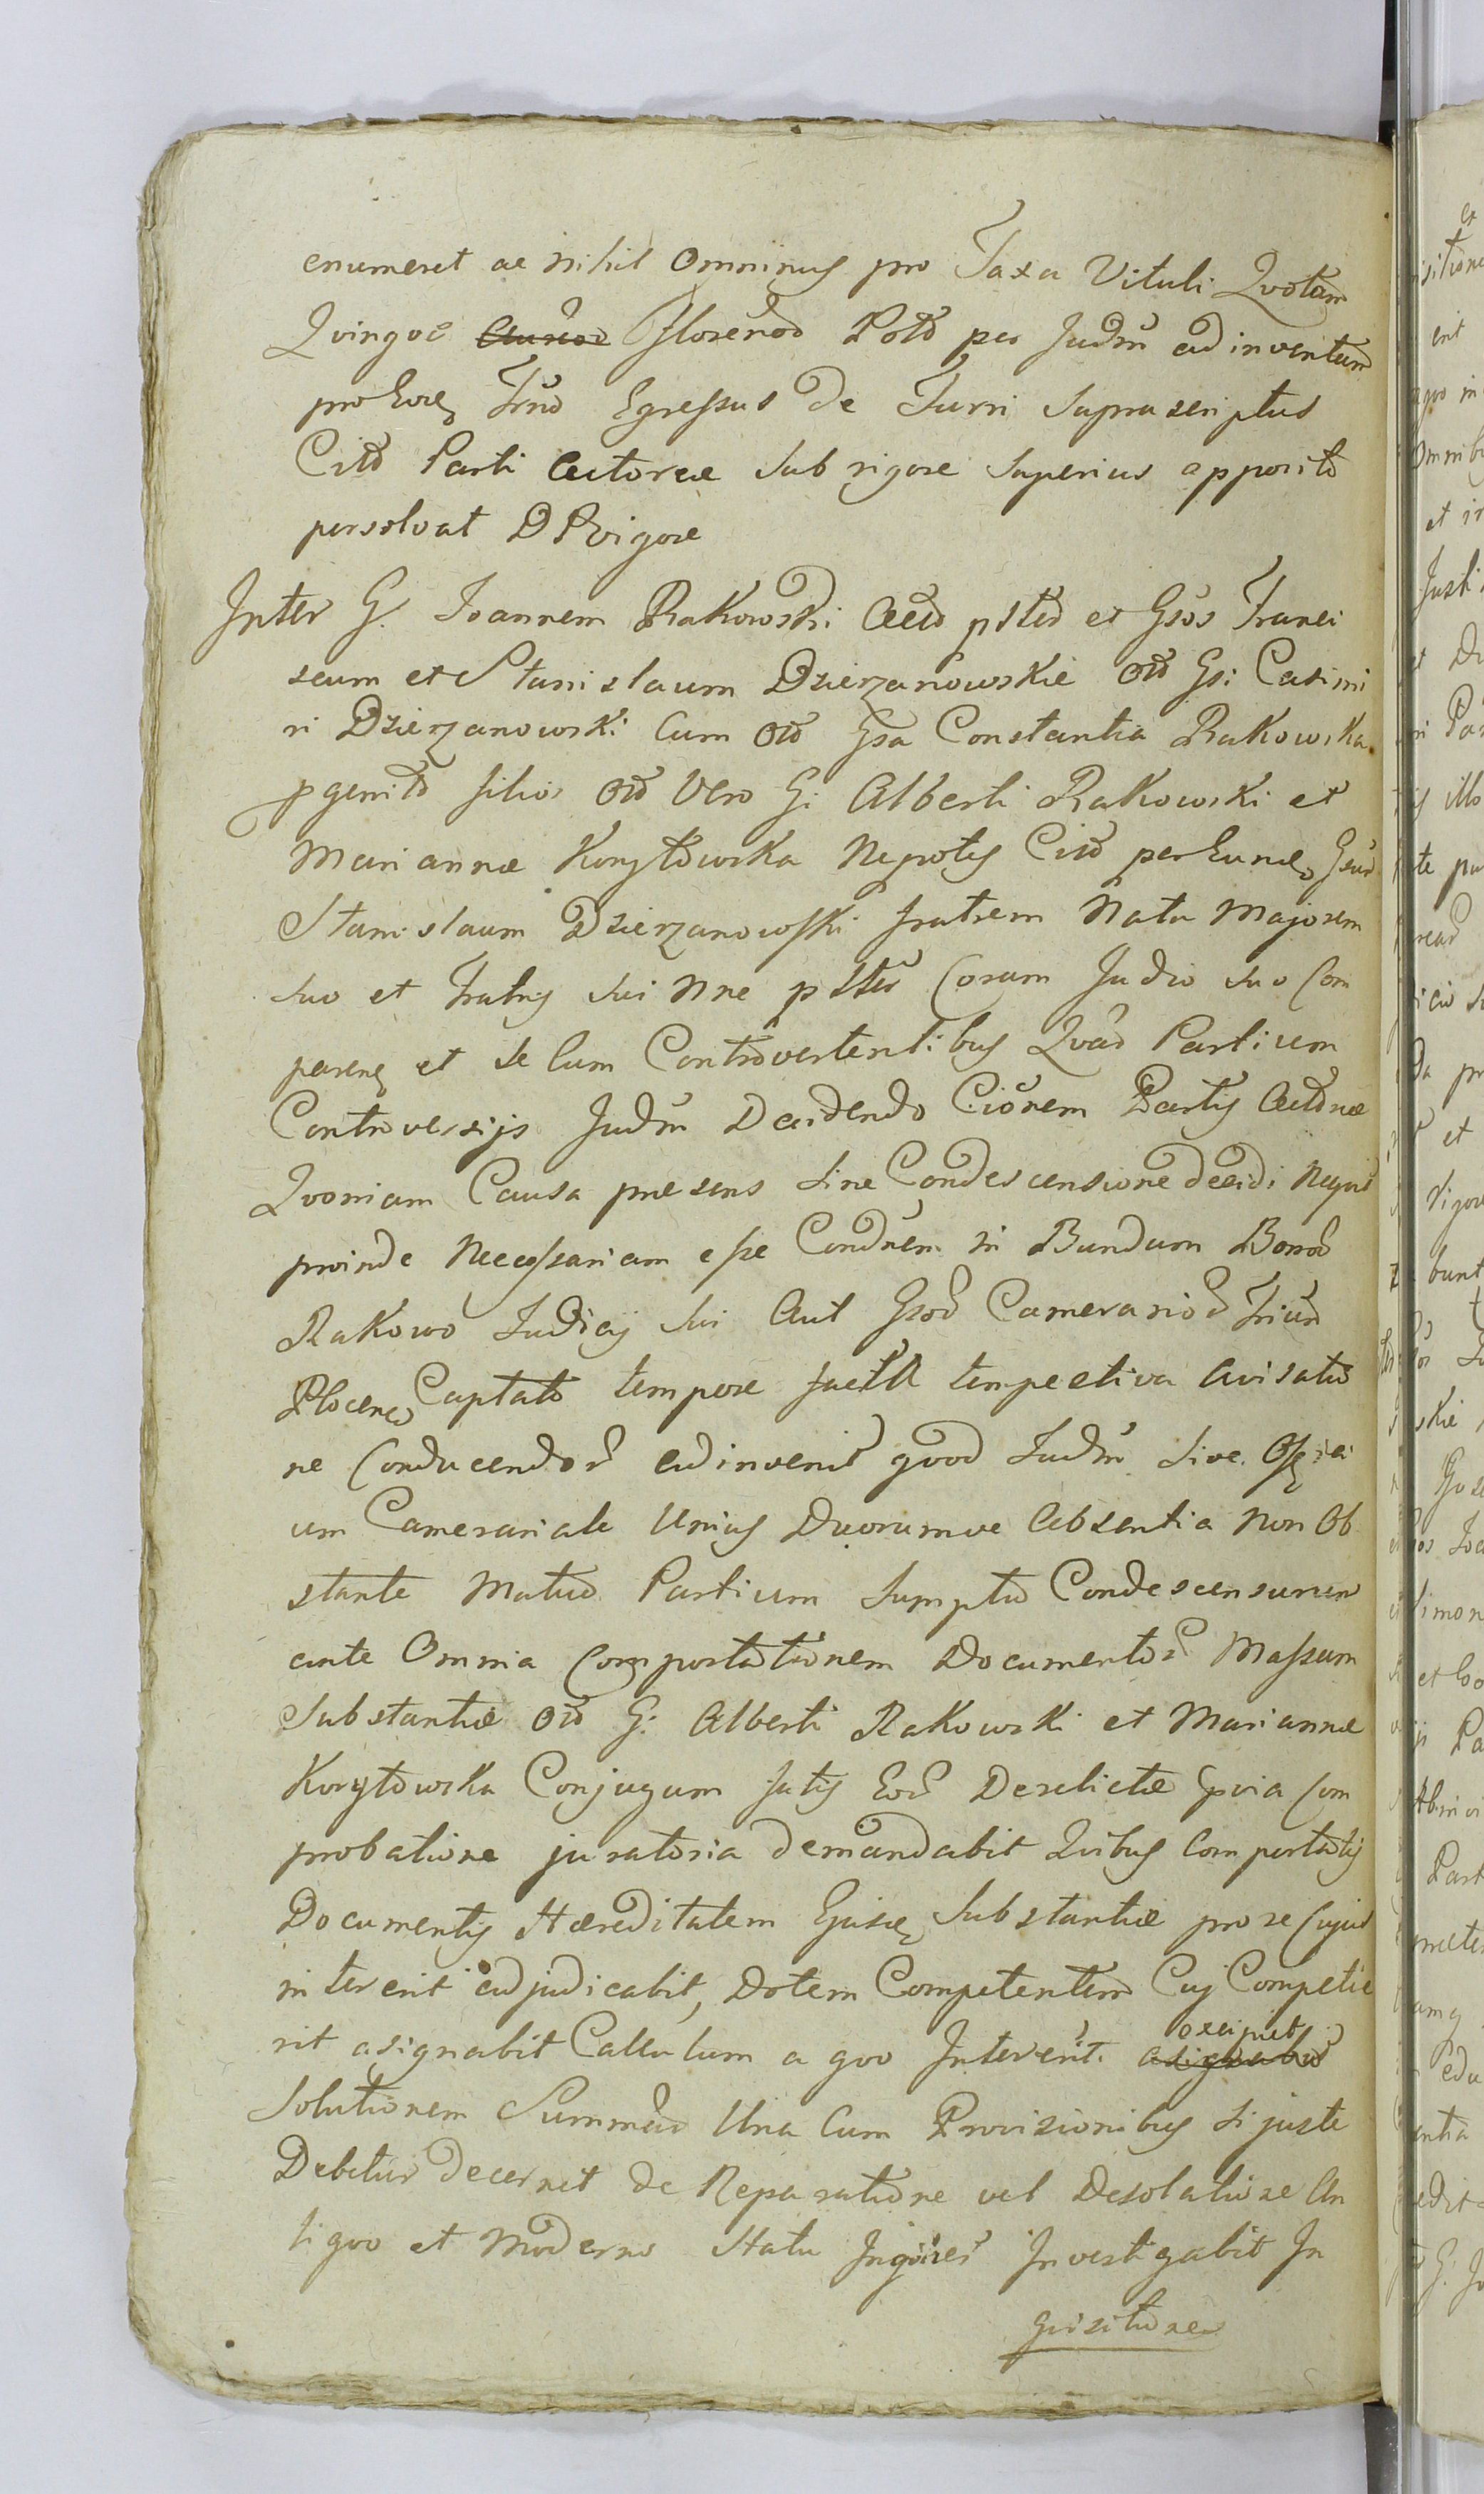 enumeret ac nihil Omninus pro Taxa Vituli Qvotam
Qvingve Florenor Polo per Judm adinventam
pro Egressus de Turri Suprascriptus
Cito Parti Actoreæ sub rigore superius apposito
persolvat D Rigore
Inter G. Joannem Rakowski et Gsos Franci
scum et Stanislaum Dzierzanowskie Olo Gsi Casimi
ri Dzierzanowski Cum Olo Gsa Constantia Rakowska
pgenito filios Olo Vero G: Alberti Rakowski et
Mariannæ Korytowska Nepotes Cito per
Stanislaum Dzierzanowski fratrem Natu Majorem
suo et Fratris sui Nne Coram Judio suo Com
paren et se Cum Controvertentibus Qvar Partium
Controversijs Judm Decidendo Cionem Partis Actoreæ
Qvoniam Causa præsens sine Condescensione decidi Neqvit
proinde Necessariam esse Condnem in Fundum Bonor
Rakowo Judicij sui Aut Gsor Camerarior
Plocen Captato tempore facta tempestiva Avisatio
ne Conducendor adinvenit qvod Judm sive Offici
um Camerariale Unius Duorumve Absentia Non Ob
stante Mutuo Partium Sumptu Condescensurum
ante Omnia Comportationem Documentor Massam
Substantiæ Olo G: Alberti Rakowski et Mariannæ
Korytowska Conjugum fatis Eor Derelictæ pvia Com
probatione juratoria demandabit Qvibus Comportatis
Documentis Hæreditatem Ejusd Substantiæ pro re Cujus
intererit adjudicabit, Dotem Competentem Cuj Competie
rit asignabit Calculum a qvo Intererit asignabit
excipiet
Solutionem Summar Una Cum Provisionibus si juste
Debetur decernet de Reparatione vel Desolatione An
tiqvo et Moderno Statu Inqvires Investigabit In
qvisitiones